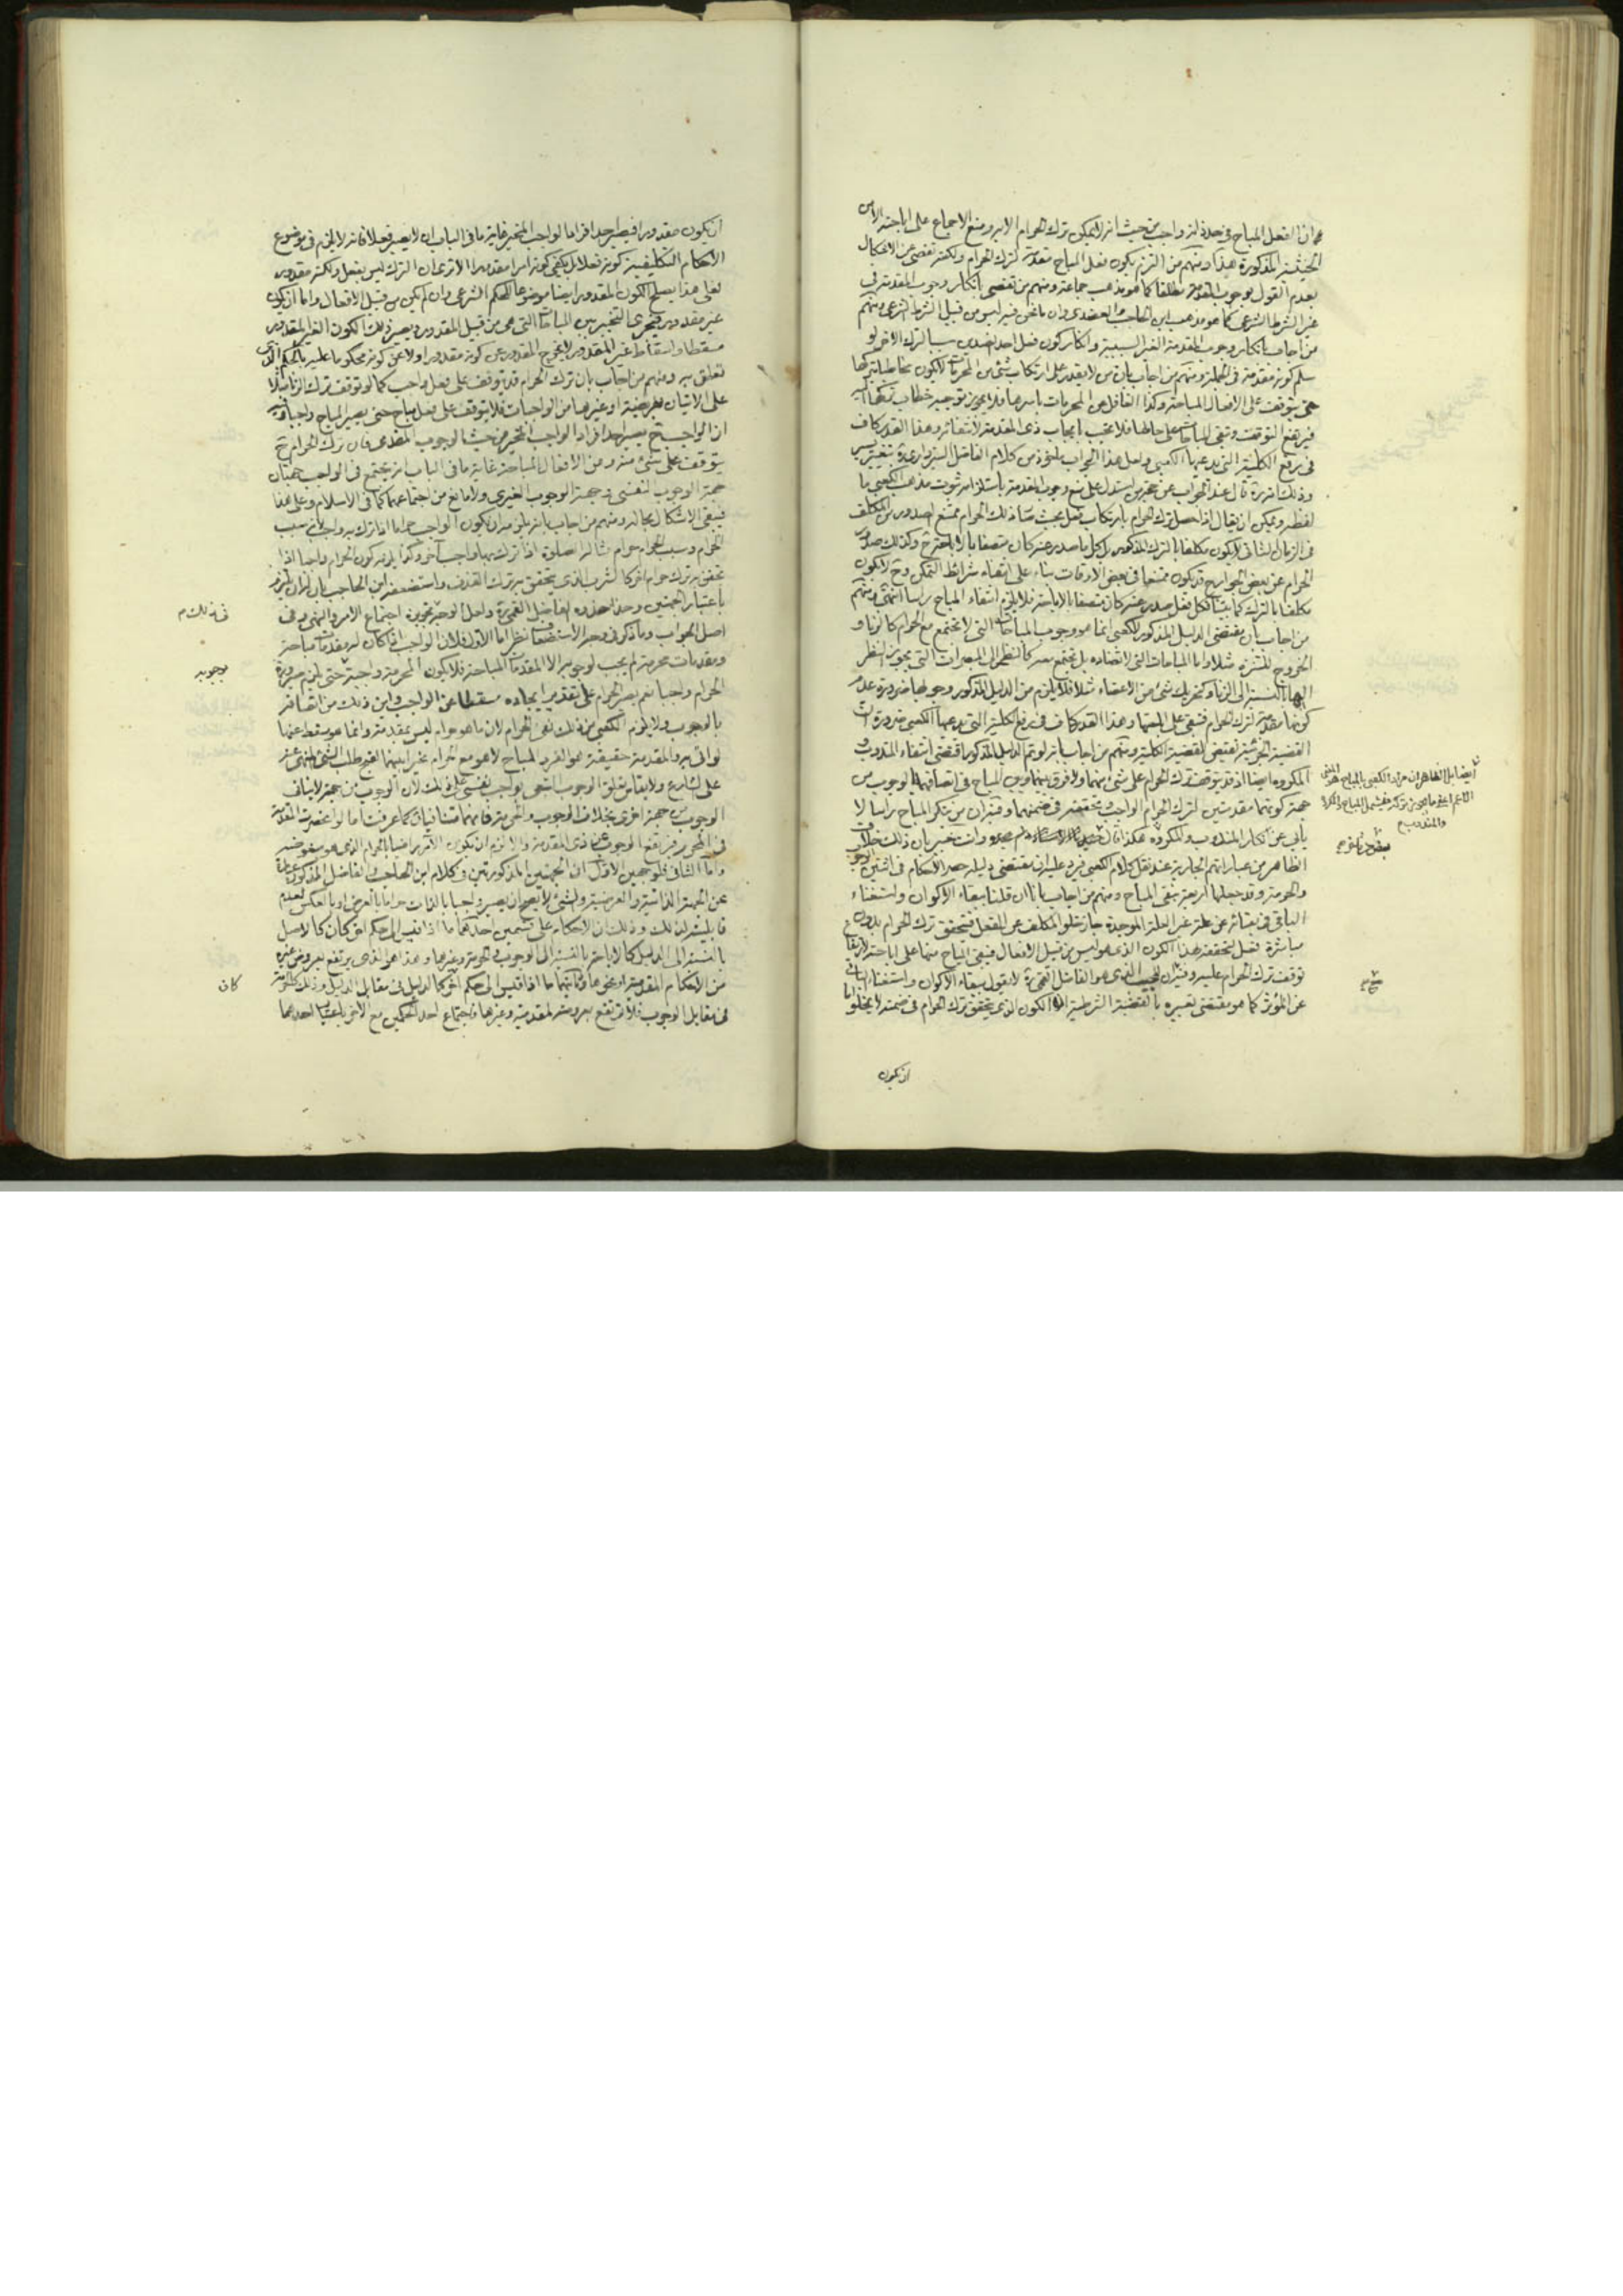 ان الفعل المباح في حد ذاته واجب من حيث انه لا يمكن ترك الحرام الا به ومنع الاجماع على اباحته الا من
الحيثية المذكورة هذا ومنهم من التزم بكون فعل المباح مقدمة لترك الحرام ولكنه تفصى عن الاشكال
بعدم القول بوجوب المقدمة مطلقا كما هو مذهب جماعة ومنهم من تفصى بانكار وجوب المقدمة في
غير الشرط الشرعي كما هو مذهب ابن الحاجب والعضدي وان ما نحن فيه ليس من قبيل الشرط الشرعي ومنهم
من اجاب بانكار وجوب المقدمة الغير السببية وانكار كون فعل احد الضدين سببا لترك الاخر لو
سلم كونه مقدمة في الجملة ومنهم من اجاب بان من لا يقدر على ارتكاب شيء من المحرمات لا يكون مخاطبا بتركها
حتى يتوقف على الافعال المباحة وكذا الغافل عن المحرمات باسرها فلا يجوز توجيه خطاب
فيرتفع التوقف وتبقى المباحات على حالها فلا تجب بايجاب ذي المقدمة لانتفائه وهذا القدر كاف
في رفع الكلية التي يدعيها الكعبي ولعل هذا الجواب ماخوذ من كلام الفاضل السبزواري ره بتغيير يسير
وذلك انه ره قال عند الجواب عن حجة من استدل على منع وجوب المقدمة باستلزامه ثبوت مذهب الكعبي ما
لفظه ويمكن ان يقال اذا حصل ترك الحرام بارتكاب فعل بحيث صار ذلك الحرام ممتنع الصدور من المكلف
في الزمان الثاني لا يكون مكلفا بالترك المذكور بل كل ما صدر عنه كان متصفا بالاباحة وكذلك صدور
الحرام عن بعض الجوارح قد يكون ممتنعا في بعض الاوقات بناء على انتفاء شرائط التمكن وح لا يكون
مكلفا بالترك كما بينا فكل فعل صدر عنه كان متصفا بالاباحة فلا يلزم انتفاء المباح راسا انتهى ومنهم
من اجاب بان مقتضى الدليل المذكور للكعبي انما هو وجوب المباحات التي لا تجتمع مع الحرام كالزنا و
الخروج للتنزه مثلا واما المباحات التي لا تضاده بل تجتمع معه كالنظر الى المبصرات التي يجوز النظر
اليها بالنسبة الى الزنا وكتحريك شيء من الاعضاء مثلا فلا يلزم من الدليل المذكور وجوبها ضرورة عدم
كونها مقدمة لترك الحرام فتبقى على اباحتها وهذا القدر كاف في رفع الكلية التي يدعيها الكعبي ضرورة ان
القضية الجزئية تقتضي نقيض القضية الكلية ومنهم من اجاب بانه لو تم الدليل المذكور اقتضى انتفاء المندوب و
المكروه ايضا اذ قد يتوقف ترك الحرام على شيء منهما ولا فرق بينهما وبين المباح في اتصافهما بالوجوب من
جهة كونهما مقدمتين لترك الحرام الواجب وتحققه في ضمنهما وفيه ان من ينكر المباح راسا لا
يابى عن انكار المندوب والمكروه هكذا قال وانت خبير بان ذلك خلاف
الظاهر من عباراتهم الجارية عند نقل كلام الكعبي فيرد عليه ان مقتضى دليله حصر الاحكام في اثنين الوجوب
والحرمة وقد جعلها اربعة بنفي المباح ومنهم من اجاب بانا ان قلنا ببقاء الاكوان واستغناء
الباقي في بقائه عن علة غير العلة الموجدة جاز خلو المكلف عن الفعل فتحقق ترك الحرام بدون
مباشرة فعل لتحققه بهذا الكون الذي هو ليس من قبيل الافعال فيبقى المباح منها على اباحته لارتفاع
توقف ترك الحرام عليه وفيه ان المجيب الذي هو الفاضل القمي ره لا يقول ببقاء الاكوان واستغناء الباقي
عن المؤثر كما هو مقتضى تعبيره بالقضية الشرطية الكون الذي يتحقق ترك الحرام في ضمنه لا يخلو اما
ان يكون
ايضا بل الظاهر ان مراد الكعبي بالمباح هو المعنى
الاعم اعني ما يجوز تركه فيشمل المباح والمكروه
والمندوب
ان يكون مقدورا فيصير احد افراد الواجب المخير غاية ما في الباب ان لا يصير فعلا فانه لا يلزم في موضوع
الاحكام التكليفية كونه فعلا بل يكفي كونه امرا مقدورا الا ترى ان الترك ليس بفعل ولكنه مقدور
فعلى هذا يصلح الكون المقدور ايضا موضوعا للحكم الشرعي وان لم يكن من قبيل الافعال واما ان يكون
غير مقدور فيجري التخيير بين المباحات التي هي من قبيل المقدور ويصير ذلك الكون الغير المقدور
مسقطا واسقاط غير المقدور لا يخرج المقدور عن كونه مقدورا ولا عن كونه محكوما عليه بالحكم الذي
تعلق به ومنهم من اجاب بان ترك الحرام قد يتوقف على فعل واجب كما لو توقف ترك الزنا مثلا
على الاتيان بفريضة او غيرها من الواجبات فلا يتوقف على فعل مباح حتى يصير المباح واجبا وفيه
ان الواجب ح يصير احد افراد الواجب المخير من حيث الوجوب المقدمي فان ترك الحرام ح
يتوقف على شيء منه ومن الافعال المباحة غاية ما في الباب انه يجتمع في الواجب جهتان
جهة الوجوب النفسي وجهة الوجوب الغيري ولا مانع من اجتماعهما كما في الاسلام وعلى هذا
فيبقى الاشكال بحاله ومنهم من اجاب بانه يلزم ان يكون الواجب حراما اذا ترك به واجب لانه سبب
الحرام وسبب الحرام حرام مثاله الصلوة اذا ترك بها واجب آخر وكذا يلزم كون الحرام واجبا اذا
تحقق به ترك حرام آخر كالشرب الذي يتحقق به ترك القذف واستضعفه ابن الحاجب بان له ان يلتزم
باعتبار الجهتين وحذا حذوه الفاضل القمي ره ولعل الوجه تجويزه اجتماع الامر والنهي وفي
اصل الجواب وما ذكر في وجه الاستضعاف نظر اما الاول فلان الواجب اذا كان له مقدمات مباحة
ومقدمات محرمة لم يجب لوجوبه الا المقدمات المباحة فلا يكون المحرمة واجبة حتى يلزم صيرورة
الحرام واجبا نعم يصير الحرام على تقدير ايجاده مسقطا عن الواجب واين ذلك من اتصافه
بالوجوب ولا يلزم الكعبي من ذلك نفي الحرام لان ما هو حرام ليس بمقدمة وانما هو مسقط عنها
لو اتى به والمقدمة حقيقة هو الفرد المباح لا هو مع الحرام تخييرا بينهما لقبح طلب الشيء المنهي عنه
على الشارع ولا يقاس بتعلق الوجوب التبعي بواجب نفسي على ذلك لان الوجوب من جهة لا ينافي
الوجوب من جهة اخرى بخلاف الوجوب والحرمة فانهما متنافيان كما عرفت اما لو انحصرت المقدمة
في المحرم فيرتفع الوجوب عن ذي المقدمة والا لزم ان يكون الآمر راضيا بالحرام الذي هو مبغوضه
واما الثاني فلوجهين الاول ان الجهتين المذكورتين في كلام ابن الحاجب والفاضل المذكور عبارة
عن الجهة الذاتية والعرضية والشيء لا يصح ان يصير واجبا بالذات حراما بالعرض او بالعكس لعدم
قابليته لذلك وذلك ان الاحكام على قسمين احدهما ما اذا قيس الى حكم آخر كان كالاصل
بالنسبة الى الدليل كالاباحة بالنسبة الى الوجوب والحرمة وغيرهما وهذا هو الذي يرتفع بعروض غيره
من الاحكام المقدمية او نحوها وثانيهما ما اذا قيس الى حكم آخر كالدليل في مقابل الدليل وذلك كالحرمة
في مقابل الوجوب فلا ترتفع بعروض المقدمية وغيرها فاجتماع احد الحكمين مع الآخر باعتبار احدهما
في ذلك م
بوجوبه
كان